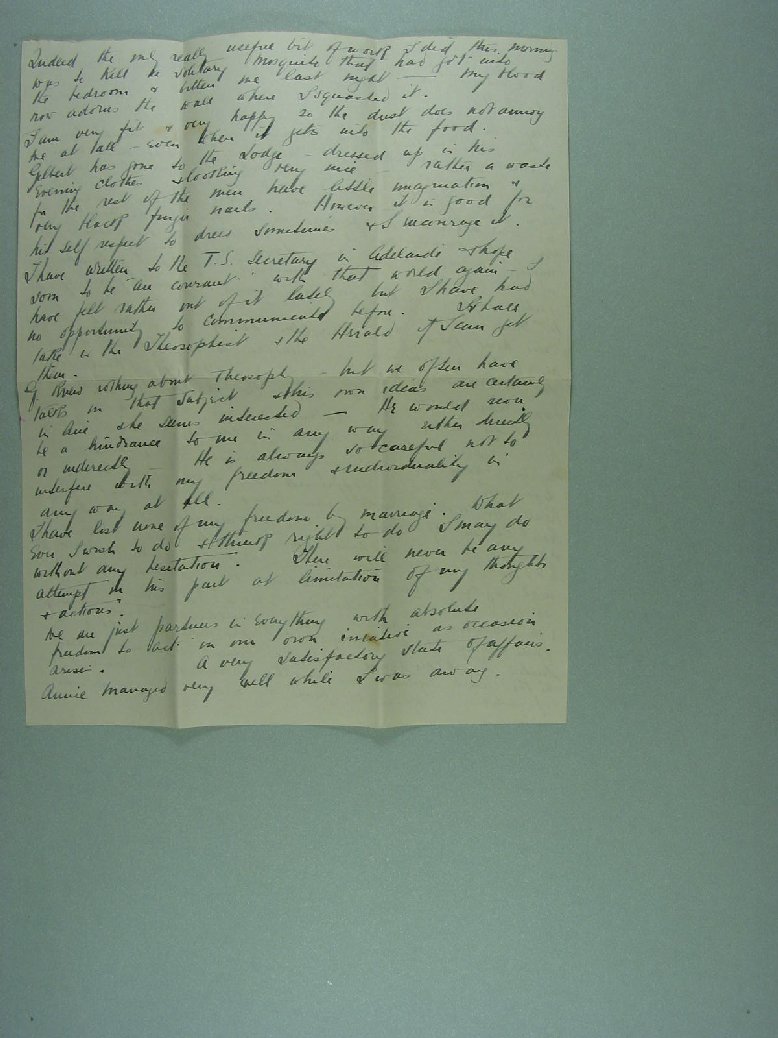 Indeed the only really useful bit of work I did this morning
was to kill the solitary mosquito that had got into
the bedroom & bitten me last night — my blood
now adorns the wall where I squashed it.
I am very fit & very happy so the dust does not annoy
me at all – even when it gets into the food.
Gilbert has gone to the Lodge – dressed up in his
evening clothes & looking very nice – rather a waste
for the rest of the men have little imagination &
very black finger nails. However it is good for
his self respect to dress sometimes & I manage it.
I have written to the T.S. Secretary in Adelaide & hope
soon to be "au courant" with that world again – I
have felt rather out of it lately but I have had
no opportunity to communicate before. I shall
take in the Theosophist & the Herald if I can get
them.
G. knew nothing about Theosophy – but we often have
talks on that subject & his own ideas are certainly
in line & he seems interested — He would never
be a hindrance to me in any way either directly
or indirectly – He is always so careful not to
interfere with my freedom & individuality in
any way at all.
I have lost none of my freedom by marriage. What
ever I wish to do & think right to do I may do
without any hesitation. There will never be any
attempt on his part at limitation of my thoughts
& actions.
We are just partners in everything with absolute
freedom to act on our own initiative as occasion
arises. A very satisfactory state of affairs.
Annie managed very well while I was away.